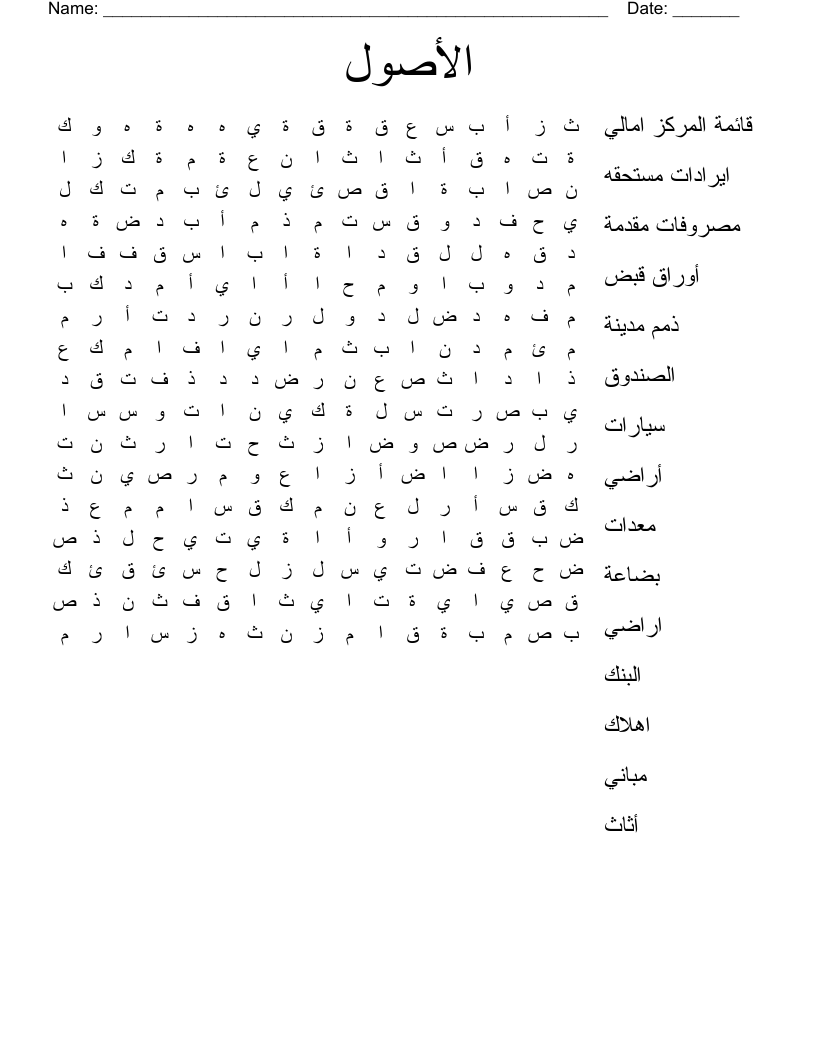 Name: ______________________________________________________ Date: _______
الأصول
قائمة المركز امالي
ايرادات مستحقه
مصروفات مقدمة
أوراق قبض
ذمم مدينة
الصندوق
سيارات
أراضي
معدات
بضاعة
اراضي
البنك
اهلاك
مباني
أثاث
ث ز أ ب س ع ق ة ق ة ي ه ه ة ه و ك
ة ت ه ق أ ث ا ث ا ن ع ة م ة ك ز ا
ن ص ا ب ة ا ق ص ئ ي ل ئ ب م ت ك ل
ي ح ف د و ق س ت م ذ م أ ب د ض ة ه
د ق ه ل ل ق د ا ة ا ب ا س ق ف ف ا
م د و ب ا و م ح ا أ ا ي أ م د ك ب
م ف ه د ض ل د و ل ر ن ر د ت أ ر م
م ئ م د ن ا ب ث م ا ي ا ف ا م ك ع
ذ ا د ا ث ص ع ن ر ض د د ذ ف ت ق د
ي ب ص ر ت س ل ة ك ي ن ا ت و س س ا
ر ل ر ض ص و ض ا ز ث ح ت ا ر ث ن ت
ه ض ز ا ا ض أ ز ا ع و م ر ص ي ن ث
ك ق س أ ر ل ع ن م ك ق س ا م م ع ذ
ض ب ق ق ا ر و أ ا ة ي ت ي ح ل ذ ص
ض ح ع ف ض ت ي س ل ز ل ح س ئ ق ئ ك
ق ص ي ا ي ة ت ا ي ث ا ق ف ث ن ذ ص
ب ص م ب ة ق ا م ز ن ث ه ز س ا ر م